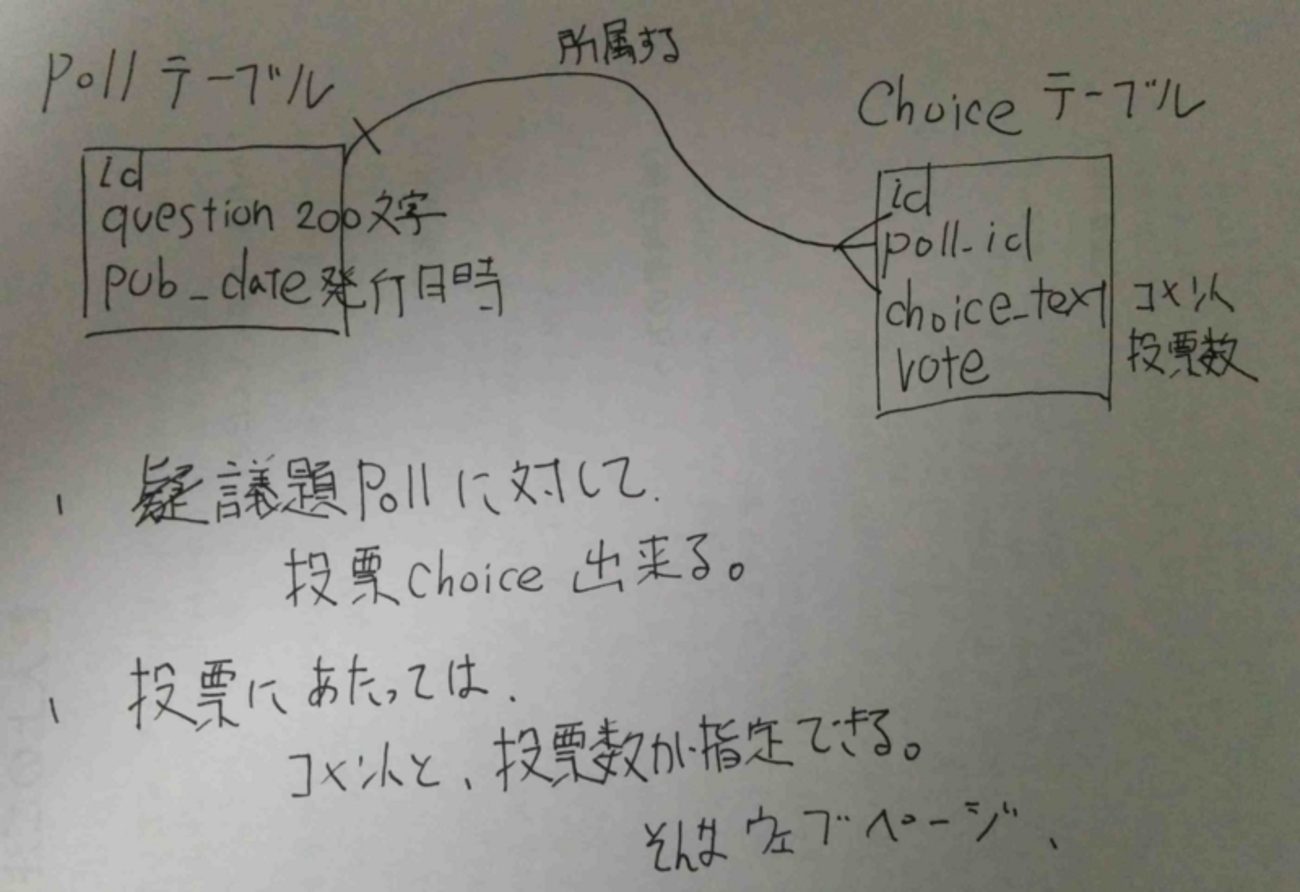 所属する
Poll テーブル
Choice テーブル
id
question 200文字
pub_date 発行日時
id
poll_id
choice_text コメント
vote 投票数
疑議題Pollに対して、
投票Choice 出来る。
投票にあたっては、
コメントと、投票数が指定できる。
そんなウェブページ、